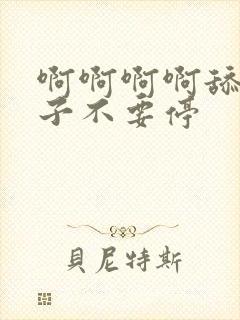 啊啊啊啊舔
子不要停
貝尼特斯